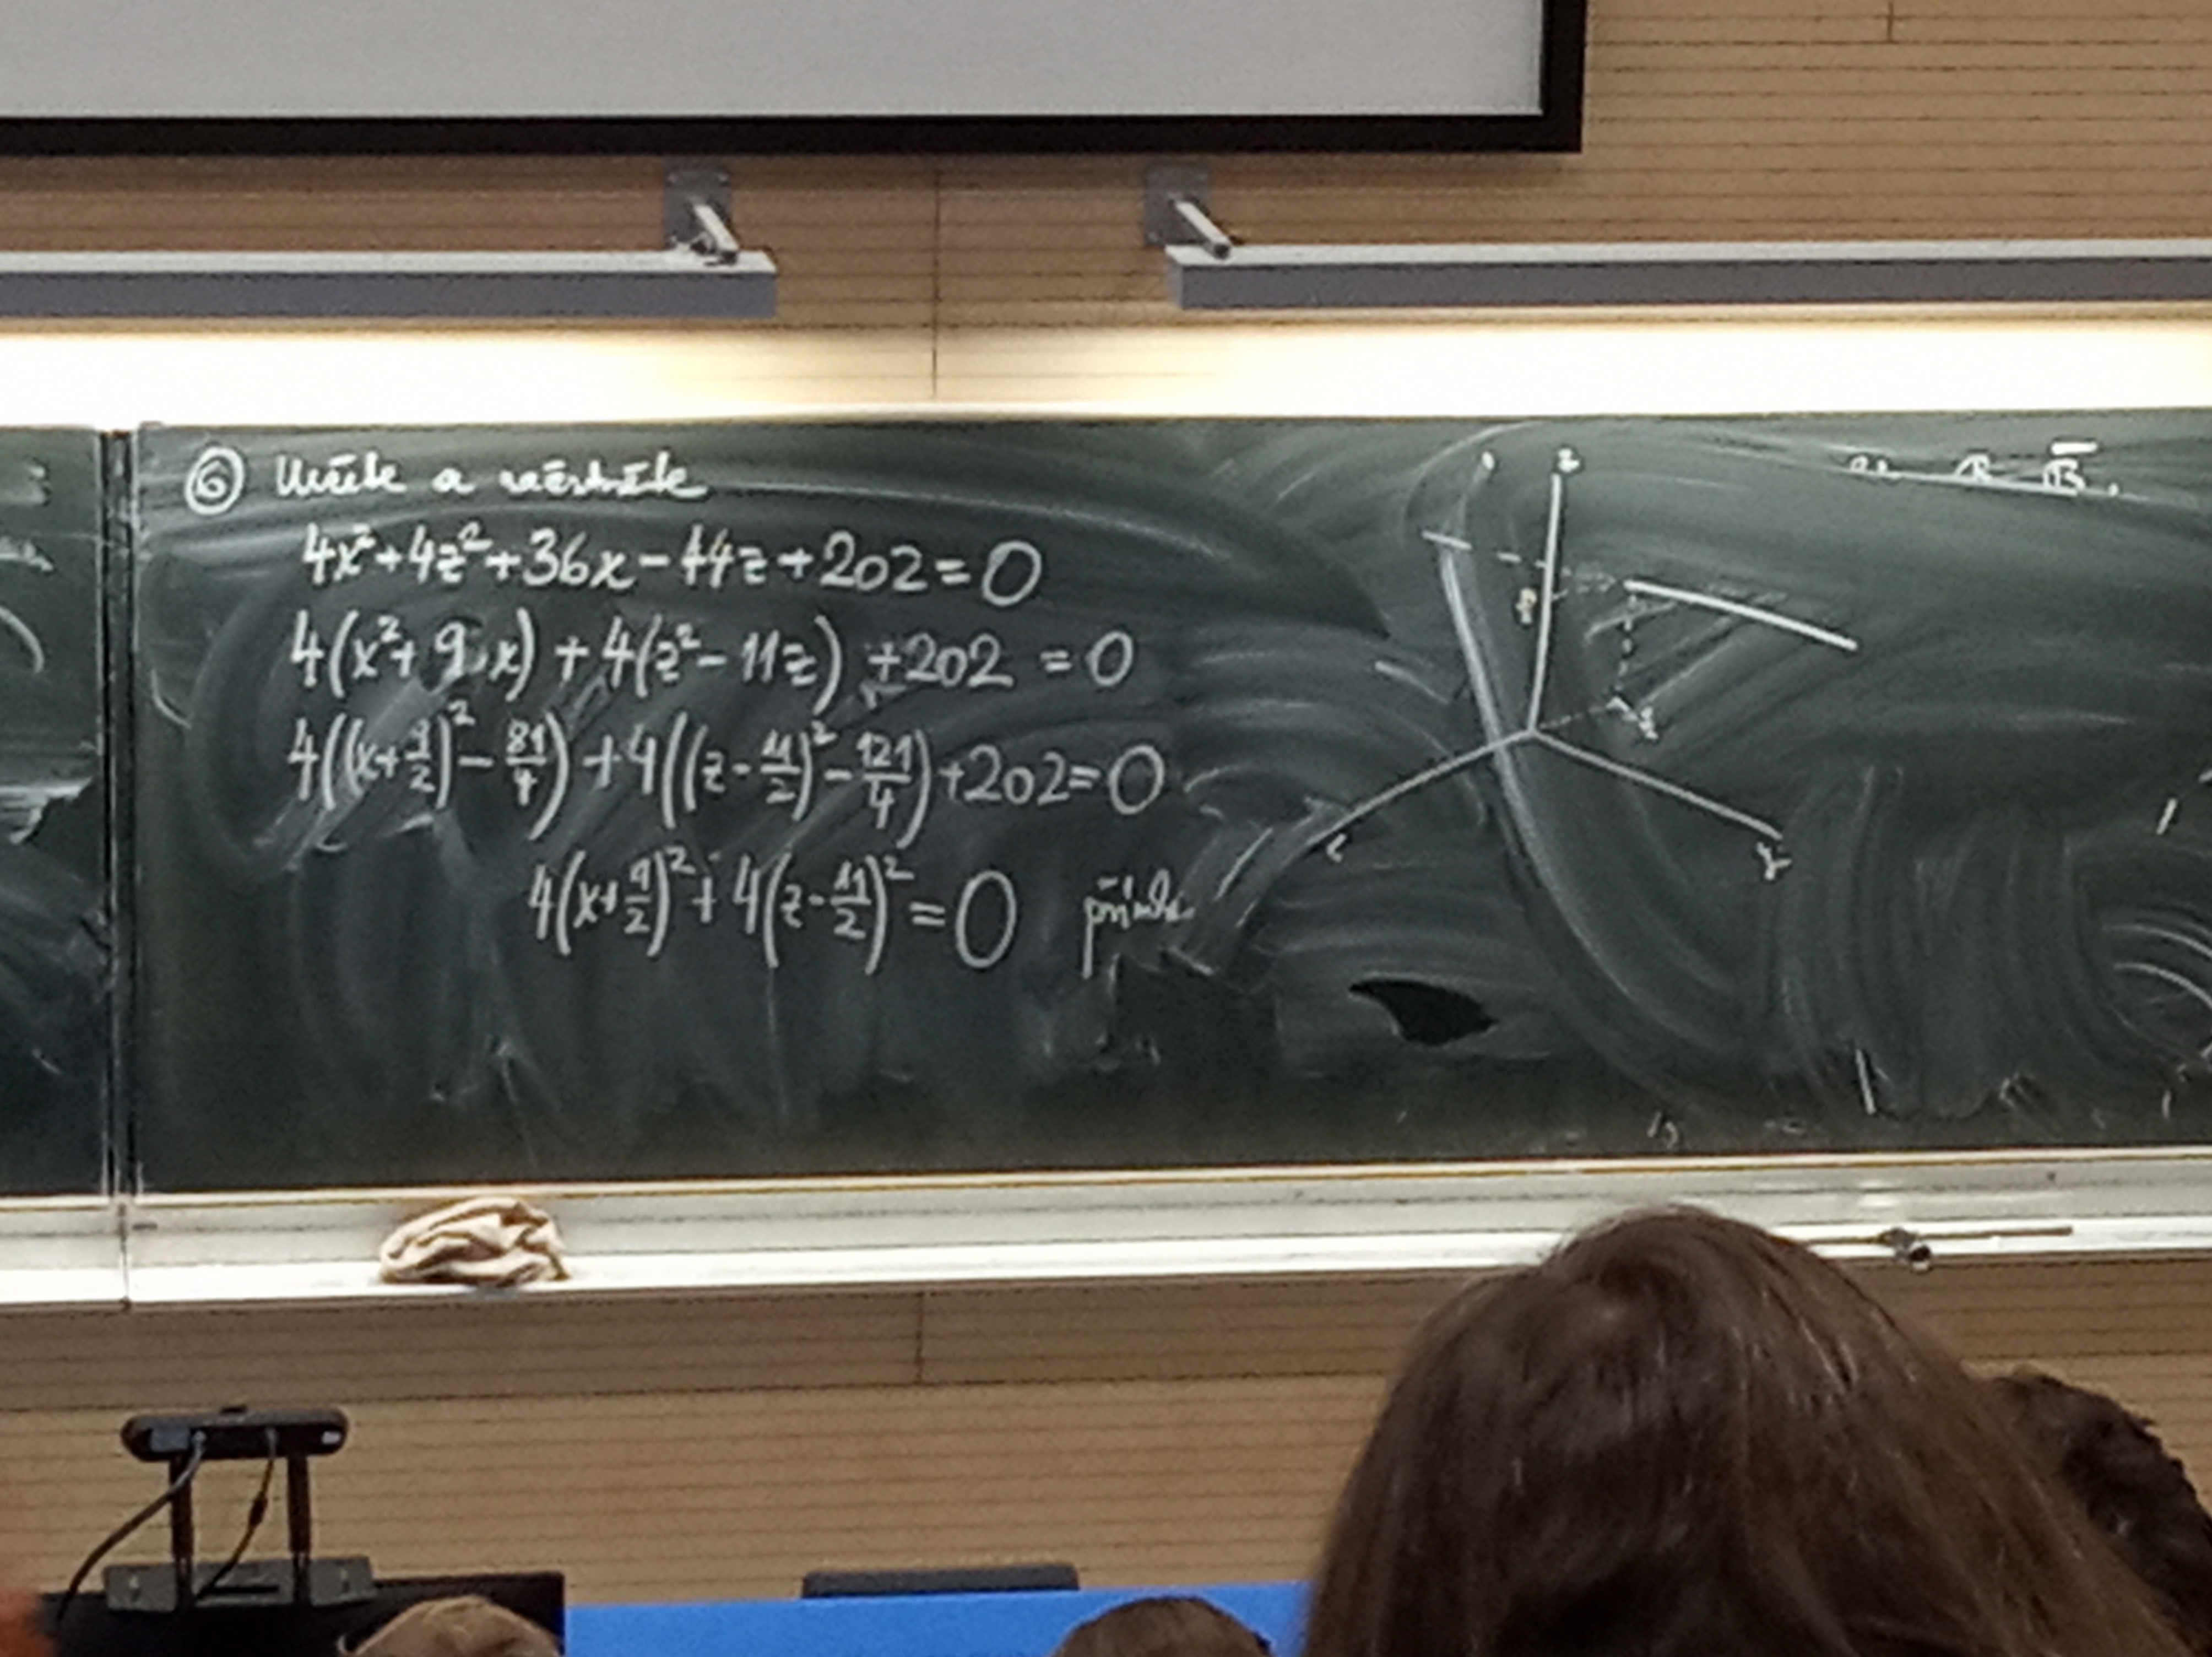 ⑥ Určete a načrtněte
4x²+4z²+36x-44z+202=0
4(x²+9x)+4(z²-11z)+202=0
4((x+9/2)²-81/4)+4((z-11/2)²-121/4)+202=0
4(x+9/2)²+4(z-11/2)²=0 přímka
z
y